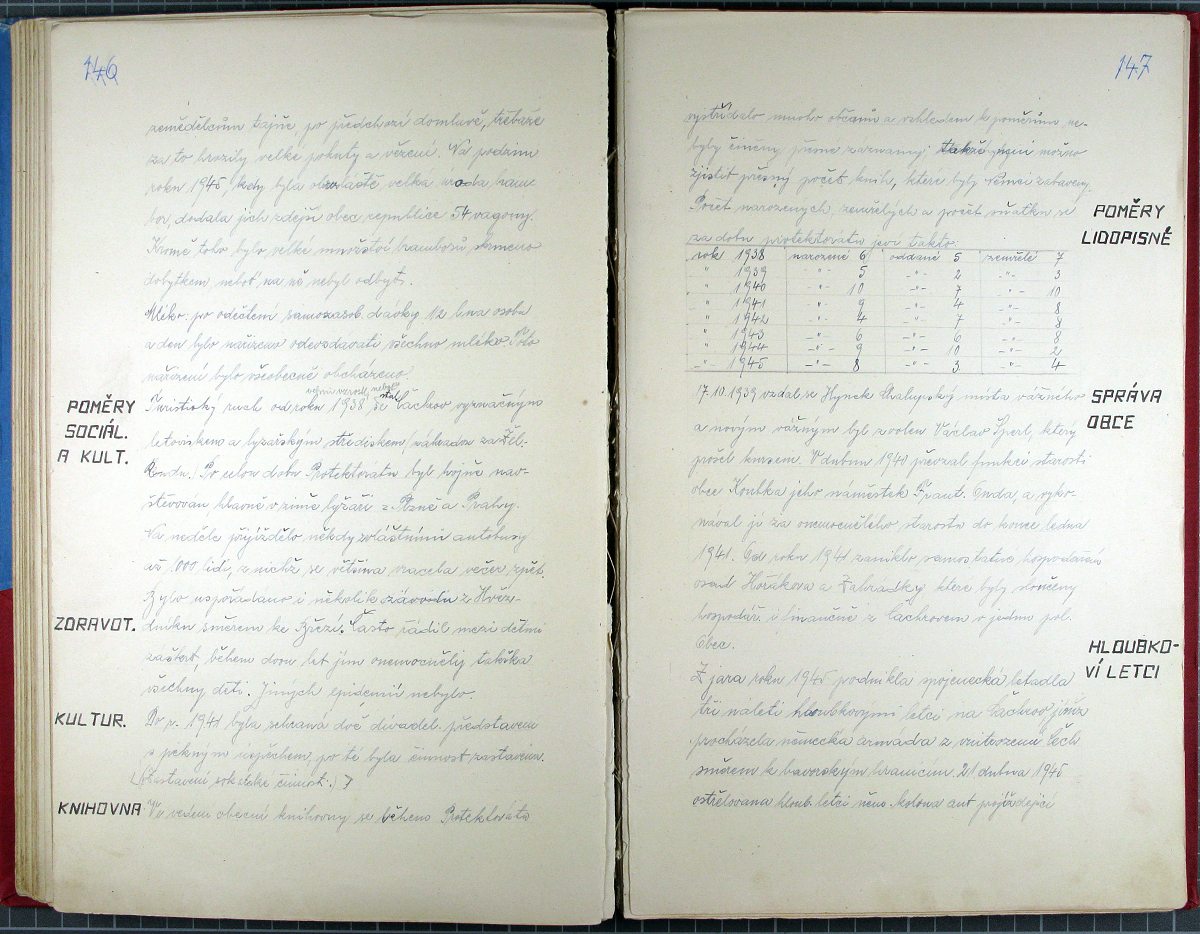 146
zemědělcům tajně, po předchozí domluvě, třebaže
za to hrozily velké pokuty a vězení. Na podzim
roku 1945, kdy byla obzvláště velká úroda bram
bor, dodala jich zdejší obec republice 54 vagony.
Kromě toho bylo velké množství bramborů krmeno
dobytkem, neboť na ně nebyl odbyt.
Mléko: po odečtení samozásob. dávky 1/2 l na osobu
a den bylo nařízeno odevzdávati všechno mléko. Toto
nařízení bylo všeobecně obcházeno.
POMĚRY
SOCIÁL.
A KULT.
Turistický ruch od roku 1938 se stal Čachrov význačným
letoviskem a lyžařským střediskem, náhradou za Žel.
Rudu. Po celou dobu Protektorátu byl hojně nav-
štěvován hlavně v zimě lyžaři z Plzně a Prahy.
Na neděle přijíždělo někdy zvláštními autobusy
až 1.000 lidí, z nichž se většina vracela večer zpět.
Bylo uspořádáno i několik závodů z Hvěz-
ZDRAVOT.
dníku směrem ke Březí. Často řádil mezi dětmi
záškrt, během dvou let jím onemocněly takřka
všechny děti. Jiných epidemií nebylo.
KULTUR.
Do r. 1941 byla sehrána dvě divadel. představení
s pěkným úspěchem, po té byla činnost zastavena.
(Zastavení sokolské činnosti.)
KNIHOVNA
Ve vedení obecní knihovny se během Protektorátu
147
vystřídalo mnoho občanů a vzhledem k poměrům ne-
byly činěny přesné záznamy, takže není možno
zjistit přesný počet knih, které byly Němci zabaveny.
POMĚRY
LIDOPISNÉ
Počet narozených, zemřelých a počet sňatků se
za dobu protektorátu jeví takto:
rok 1938 narozené 6 oddané 5 zemřelé 7
" 1939 -"- 5 -"- 2 -"- 3
" 1940 -"- 10 -"- 7 -"- 10
" 1941 -"- 9 -"- 4 -"- 8
" 1942 -"- 4 -"- 7 -"- 8
" 1943 -"- 6 -"- 6 -"- 8
" 1944 -"- 9 -"- 10 -"- 2
-"- 1945 -"- 8 -"- 3 -"- 4
SPRÁVA
OBCE
17.10.1939 vzdal se Hynek Chalupský místa vážného
a novým vážným byl zvolen Václav Šperl, který
prošel kursem. V dubnu 1940 převzal funkci starosti
obce Koubka jeho náměstek Frant. Onda, a vyko-
nával ji za onemocnělého starostu do konce ledna
1941. Od roku 1941 zaniklo samostatné hospodaření
osad Hořákova a Zahrádky které byly sloučeny
hospodář. i finančně s Čachrovem v jednu pol.
Obec.
HLOUBKO-
VÍ LETCI
Z jara roku 1945 podnikla spojenecká letadla
tři nálety hloubkovými letci na Čachrov jímž
procházela německá armáda z vnitrozemí Čech
směrem k bavorským hranicím. 21 dubna 1945
ostřelována hloub. letci něm. kolona aut projíždějící